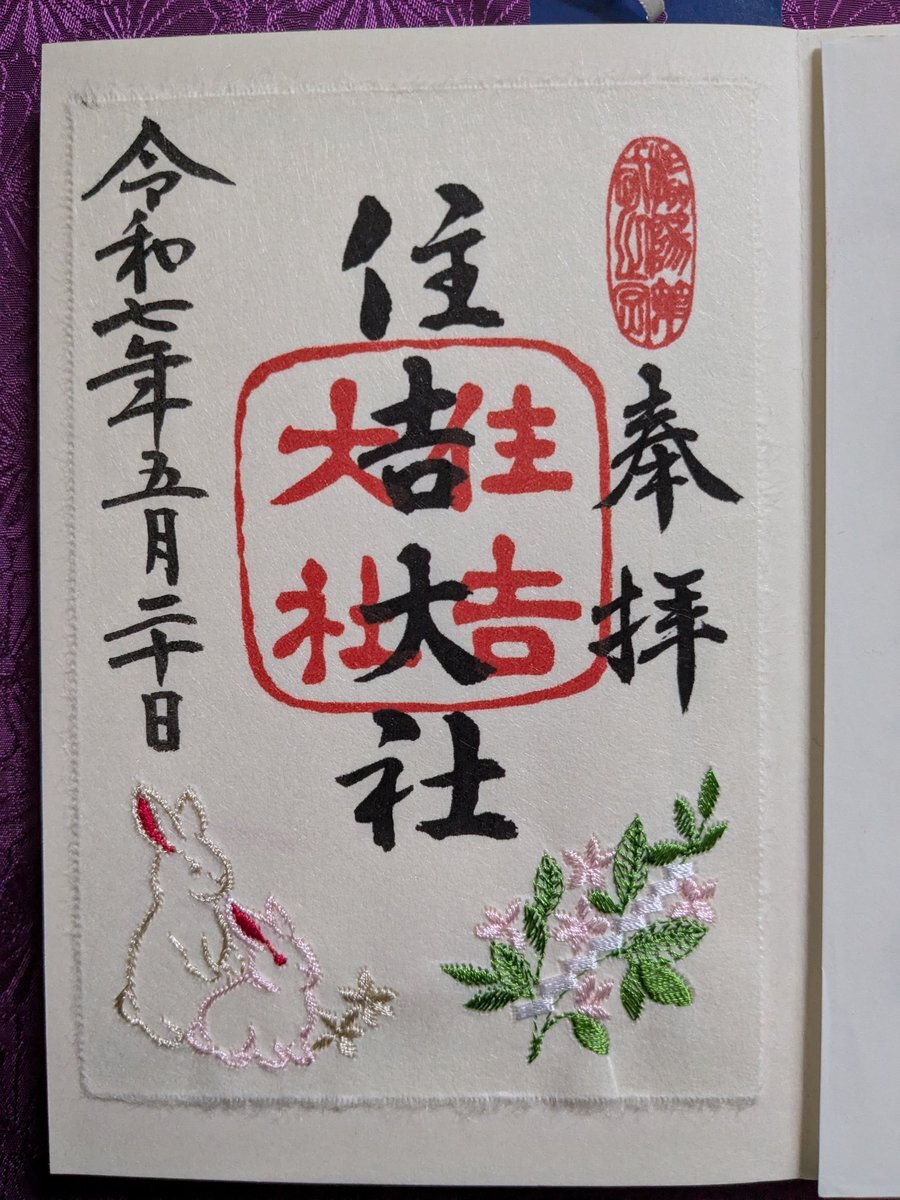 奉拝
住吉大社
住吉
大社
令和七年五月二十日